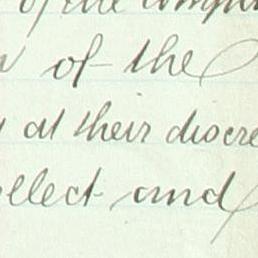 of the
of the
at their discre
ollect and